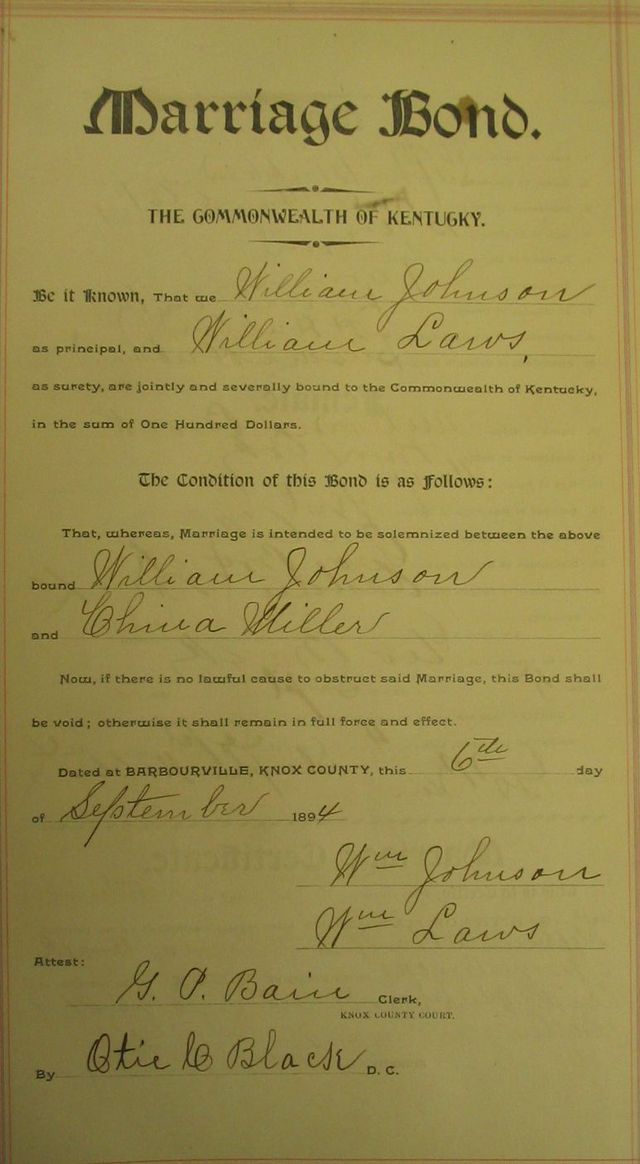 Marriage Bond.
THE COMMONWEALTH OF KENTUCKY.
Be it Known, That we William Johnson
as principal, and William Laws,
as surety, are jointly and severally bound to the Commonwealth of Kentucky,
in the sum of One Hundred Dollars.
The Condition of this Bond is as Follows:
That, whereas, Marriage is intended to be solemnized between the above
bound William Johnson
and China Miller
Now, if there is no lawful cause to obstruct said Marriage, this Bond shall
be void; otherwise it shall remain in full force and effect.
Dated at BARBOURVILLE, KNOX COUNTY, this 6th day
of September 1894
Wm Johnson
Wm Laws
Attest:
G. P. Bain Clerk,
KNOX COUNTY COURT.
By Black D. C.